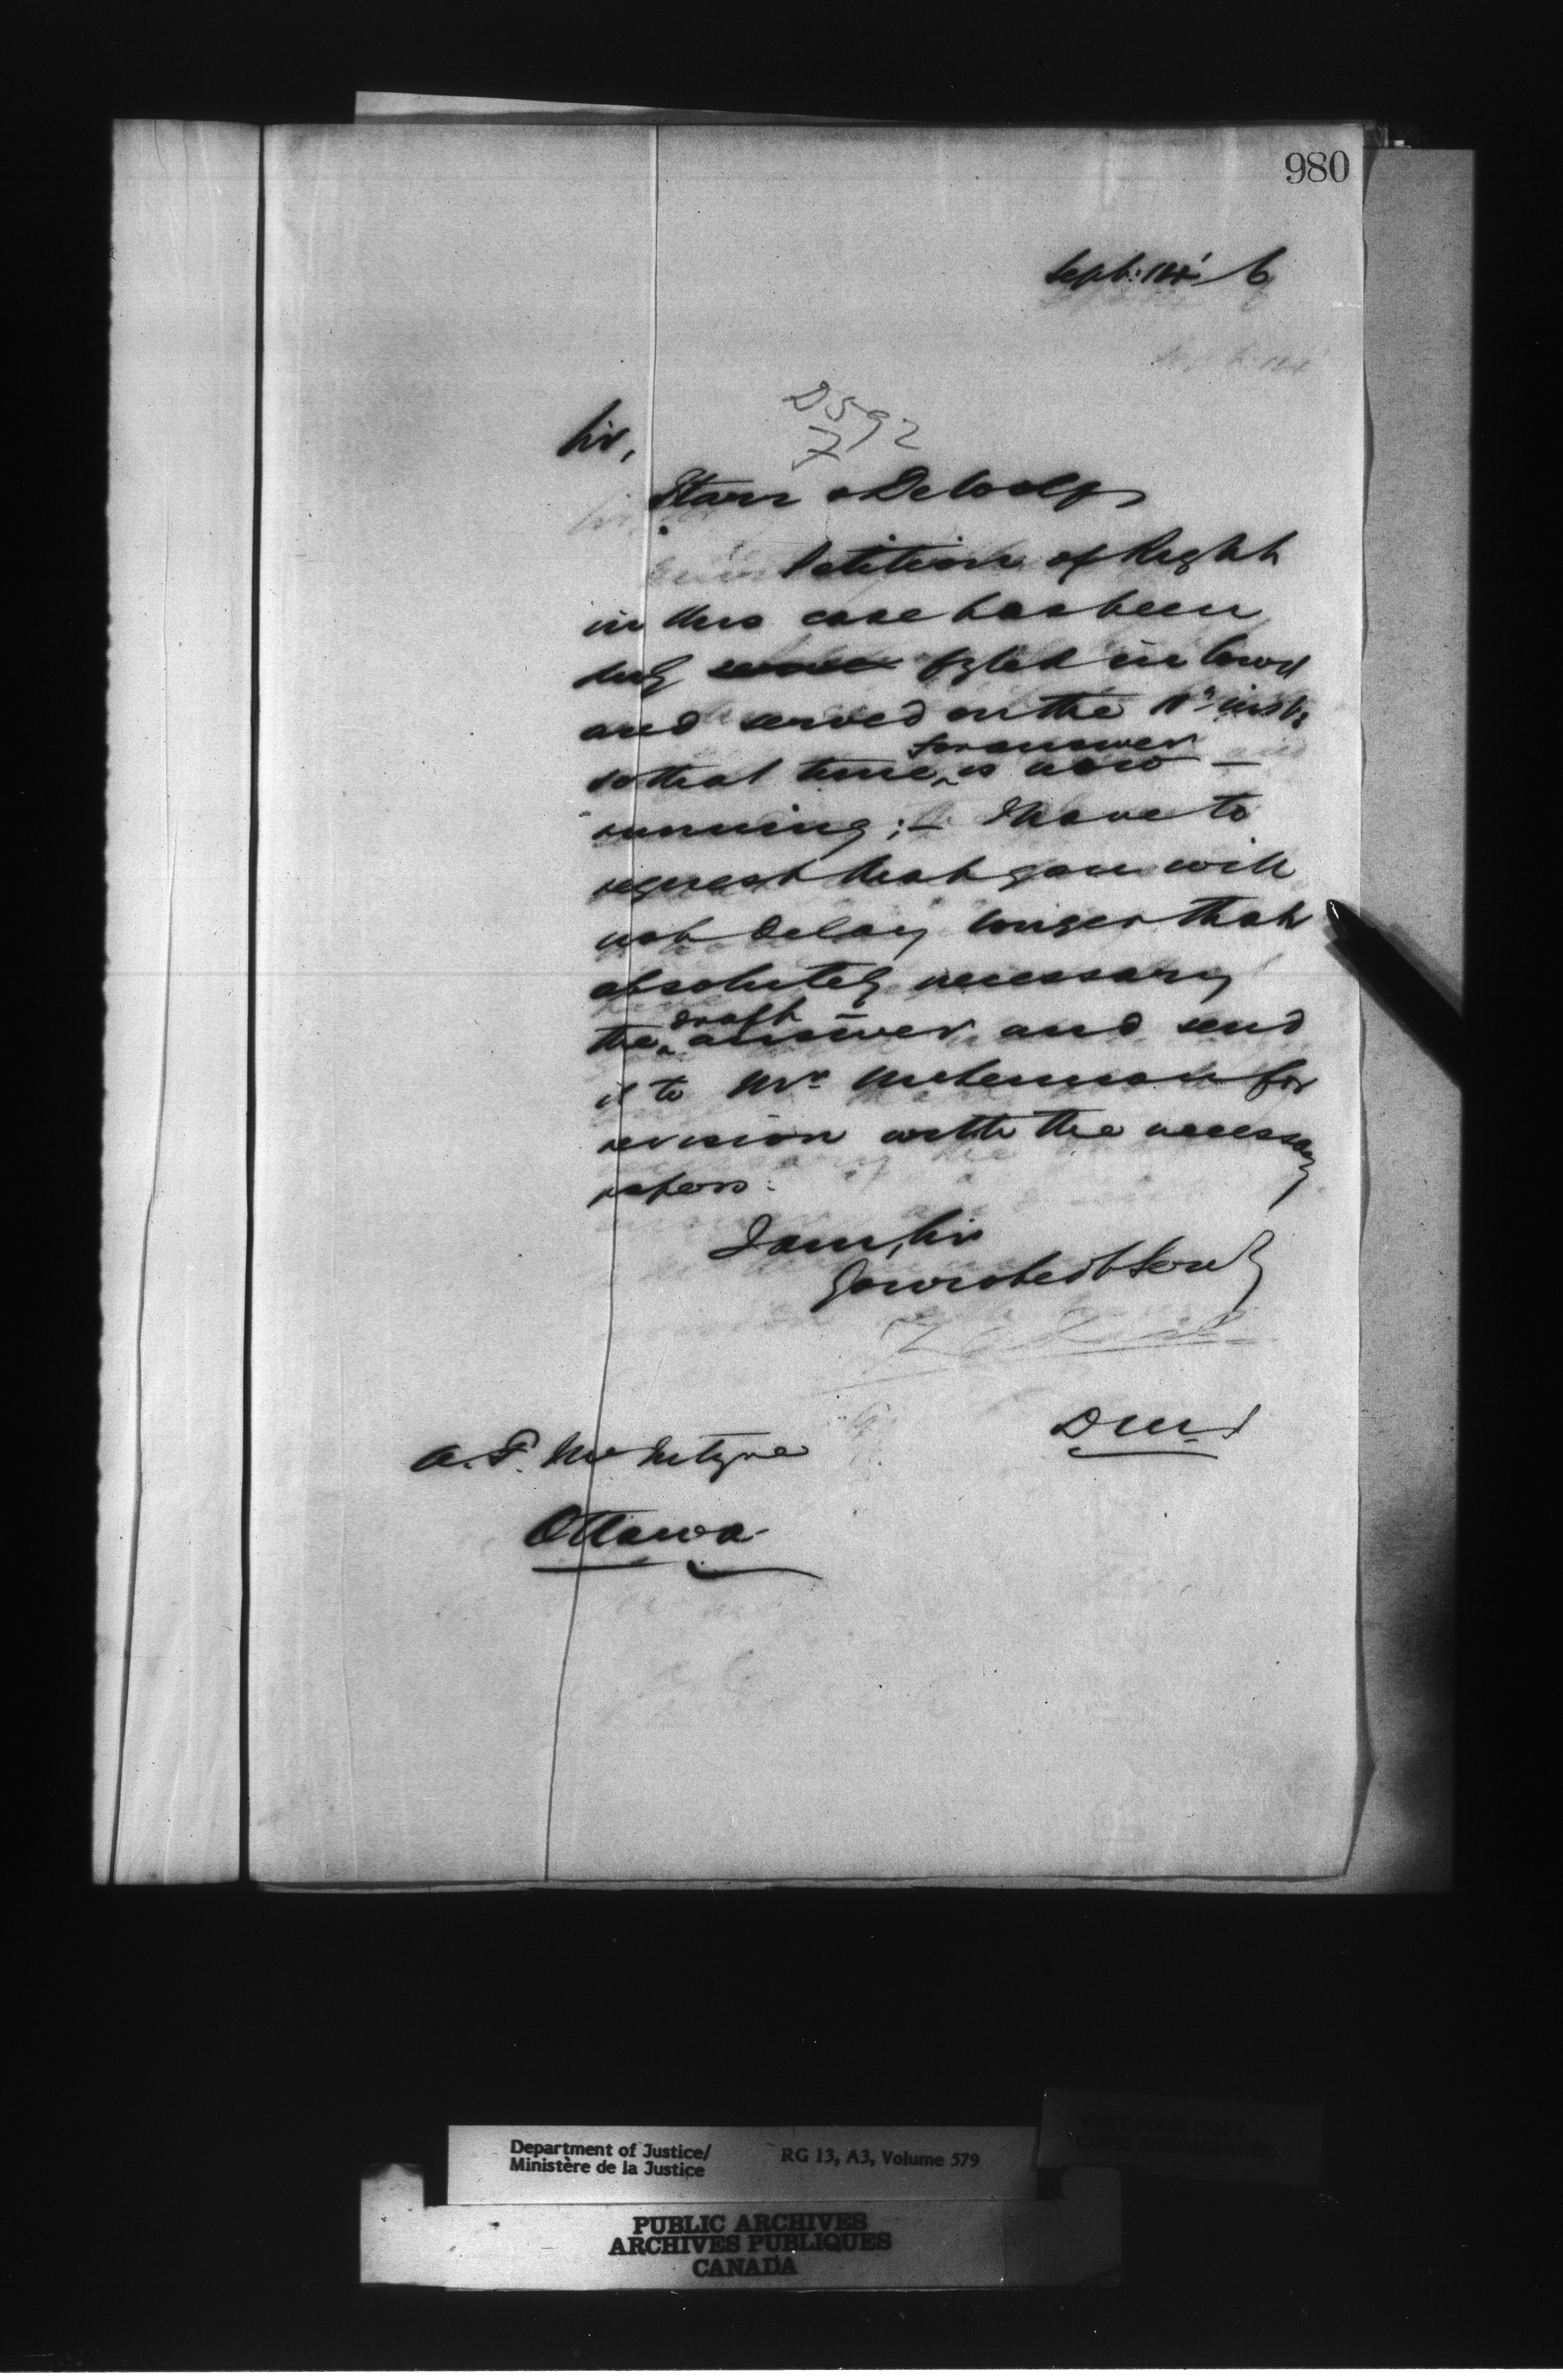 980
Sept: 14' 6
D592
7
Sir,
Starr & DeWolf
Petition of Right
in this case has been
duly fyled in Court
and served on the 11th inst:
so that time for answer is now —
running; — I have to
request that you will
not delay longer than
absolutely necessary
the draft answer and send
it to Mr. for
revision with the necessary
papers.
I am, Sir
Your obedt Servt
D M J
A. F. McIntyre
Ottawa
Department of Justice/
Ministère de la Justice
RG 13, A3, Volume 579
PUBLIC ARCHIVES
ARCHIVES PUBLIQUES
CANADA